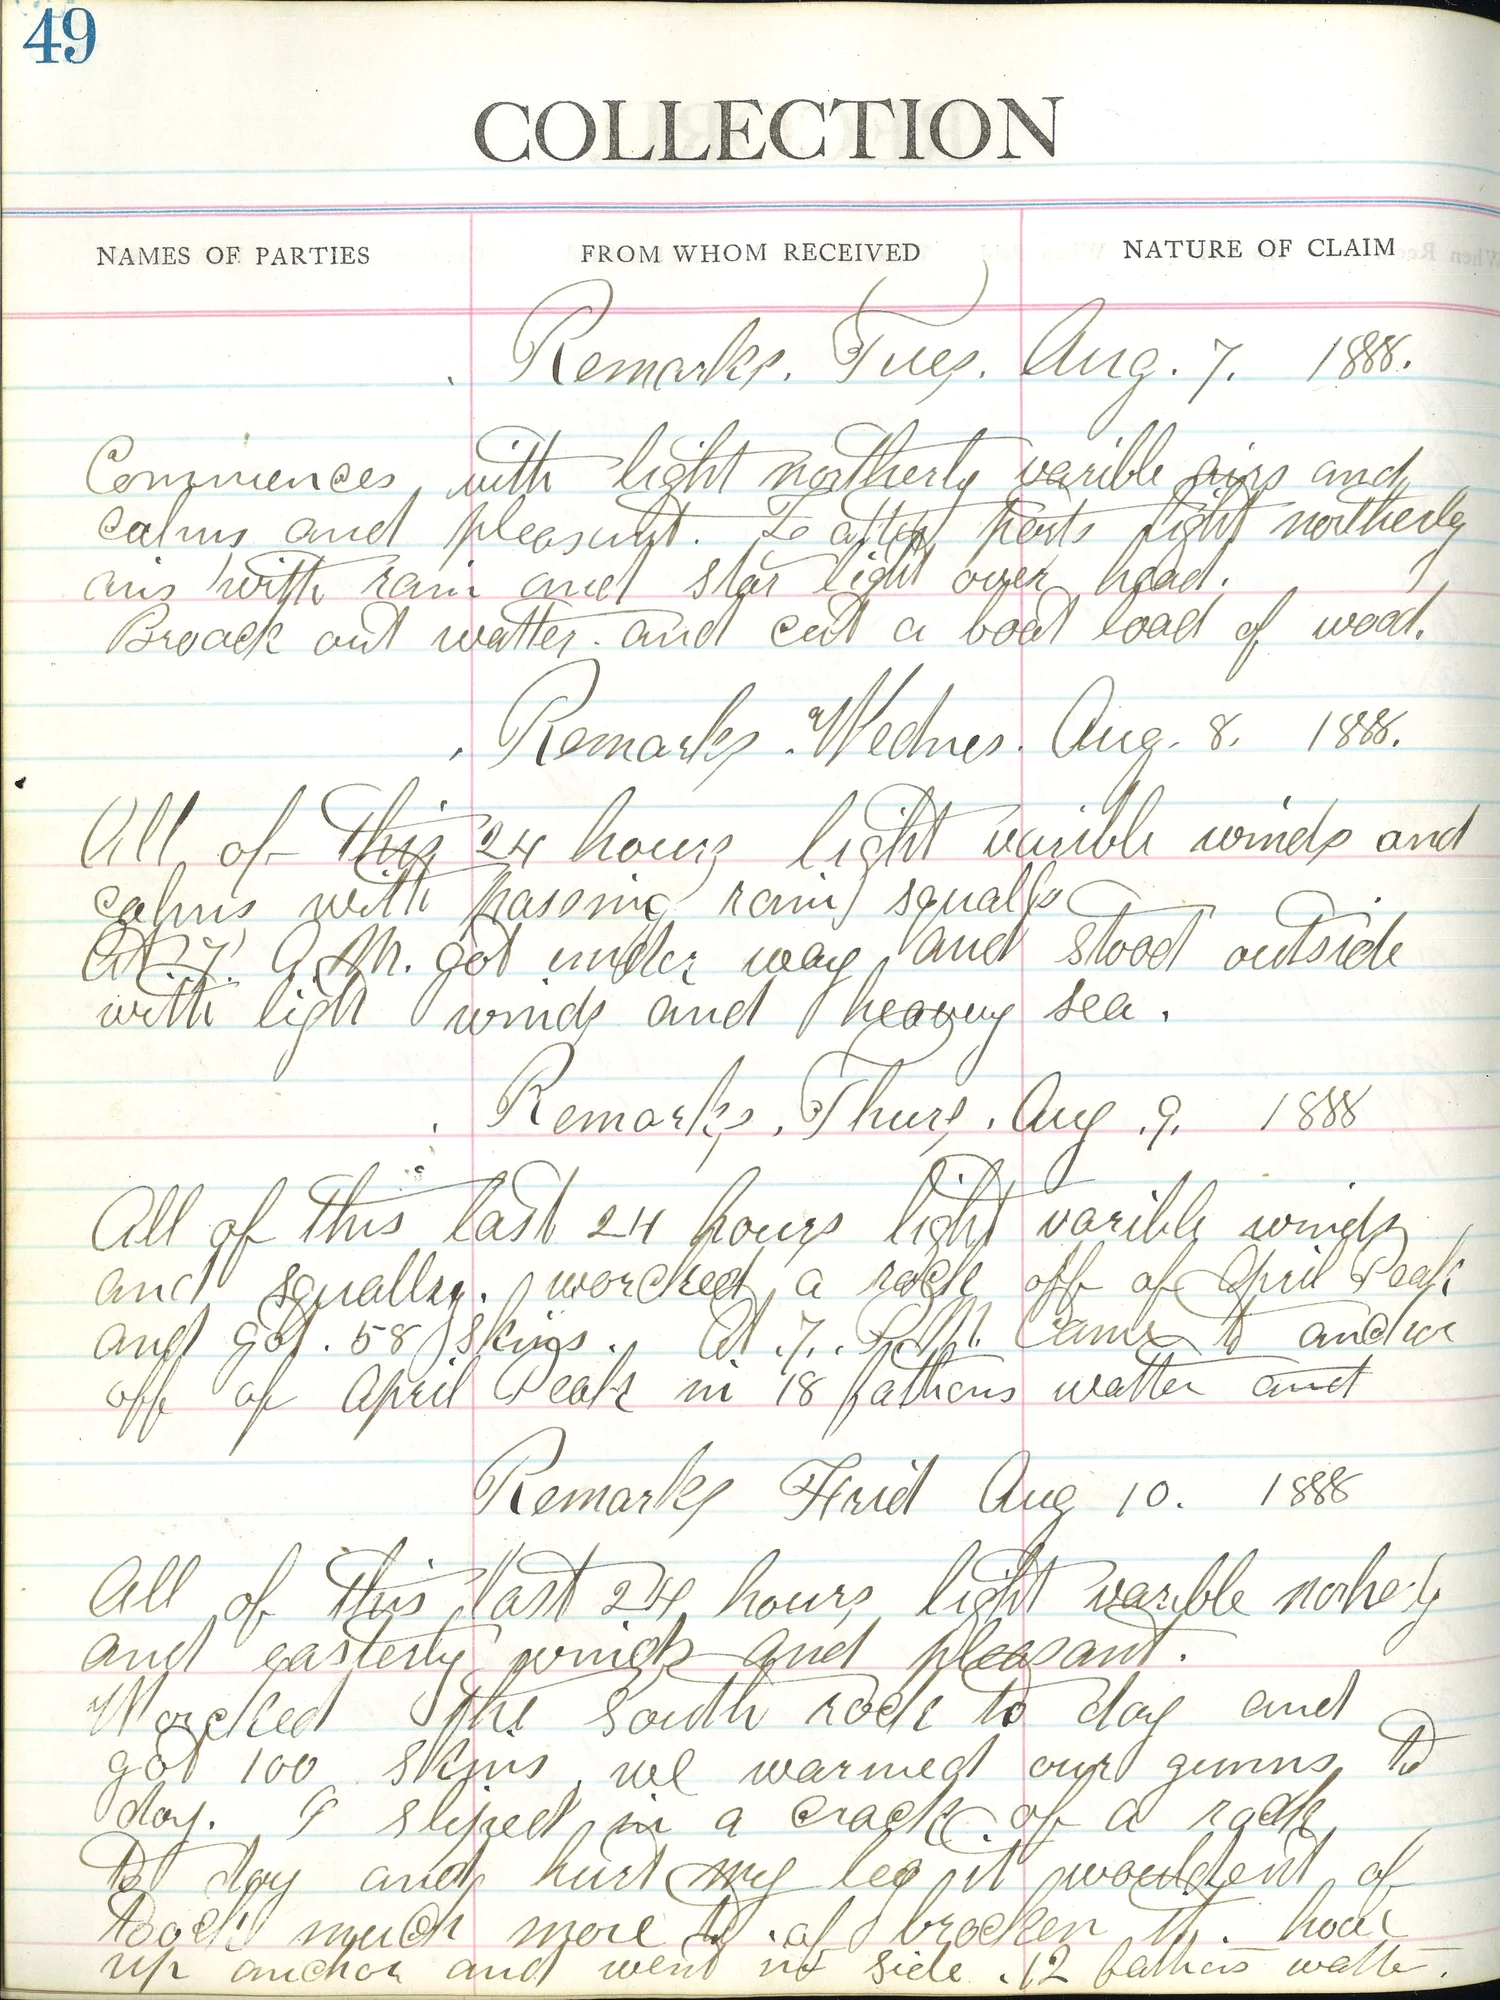 49
COLLECTION
NAMES OF PARTIES FROM WHOM RECEIVED NATURE OF CLAIM
Remarks. Tues. Aug. 7. 1888.
Commences with light northerly varible airs and
calms and pleasunt. Lo after parts light northerly
airs with rain and star light over head.
Broack out watter. and cut a boat load of wood.
Remarks. Wednes. Aug. 8. 1888.
All of this 24 hours light varible winds and
calms with passing rain squalls
At. 7. A.M. got under way and stood outside
with ligh winds and heavey sea.
Remarks. Thurs. Aug. 9. 1888
All of this last 24 hours light varible winds
and squalley. worcked a rock off of April Peak
and got. 58 skins. At. 7. P.M. Came to
off of April Peak in 18 fathoms watter and
Remarks Frid Aug 10. 1888
All of this last 24 hours light varible
and easterly winds and pleasant.
Worcked the south rock to day and
got 100 skins. we warmed our gunns to
day. I sliped in a crack of a rock
to day and hurt my leg it wouldent of
toock much more to of brocken it. hove
up anchor and went in side. 12 fathoms watter.